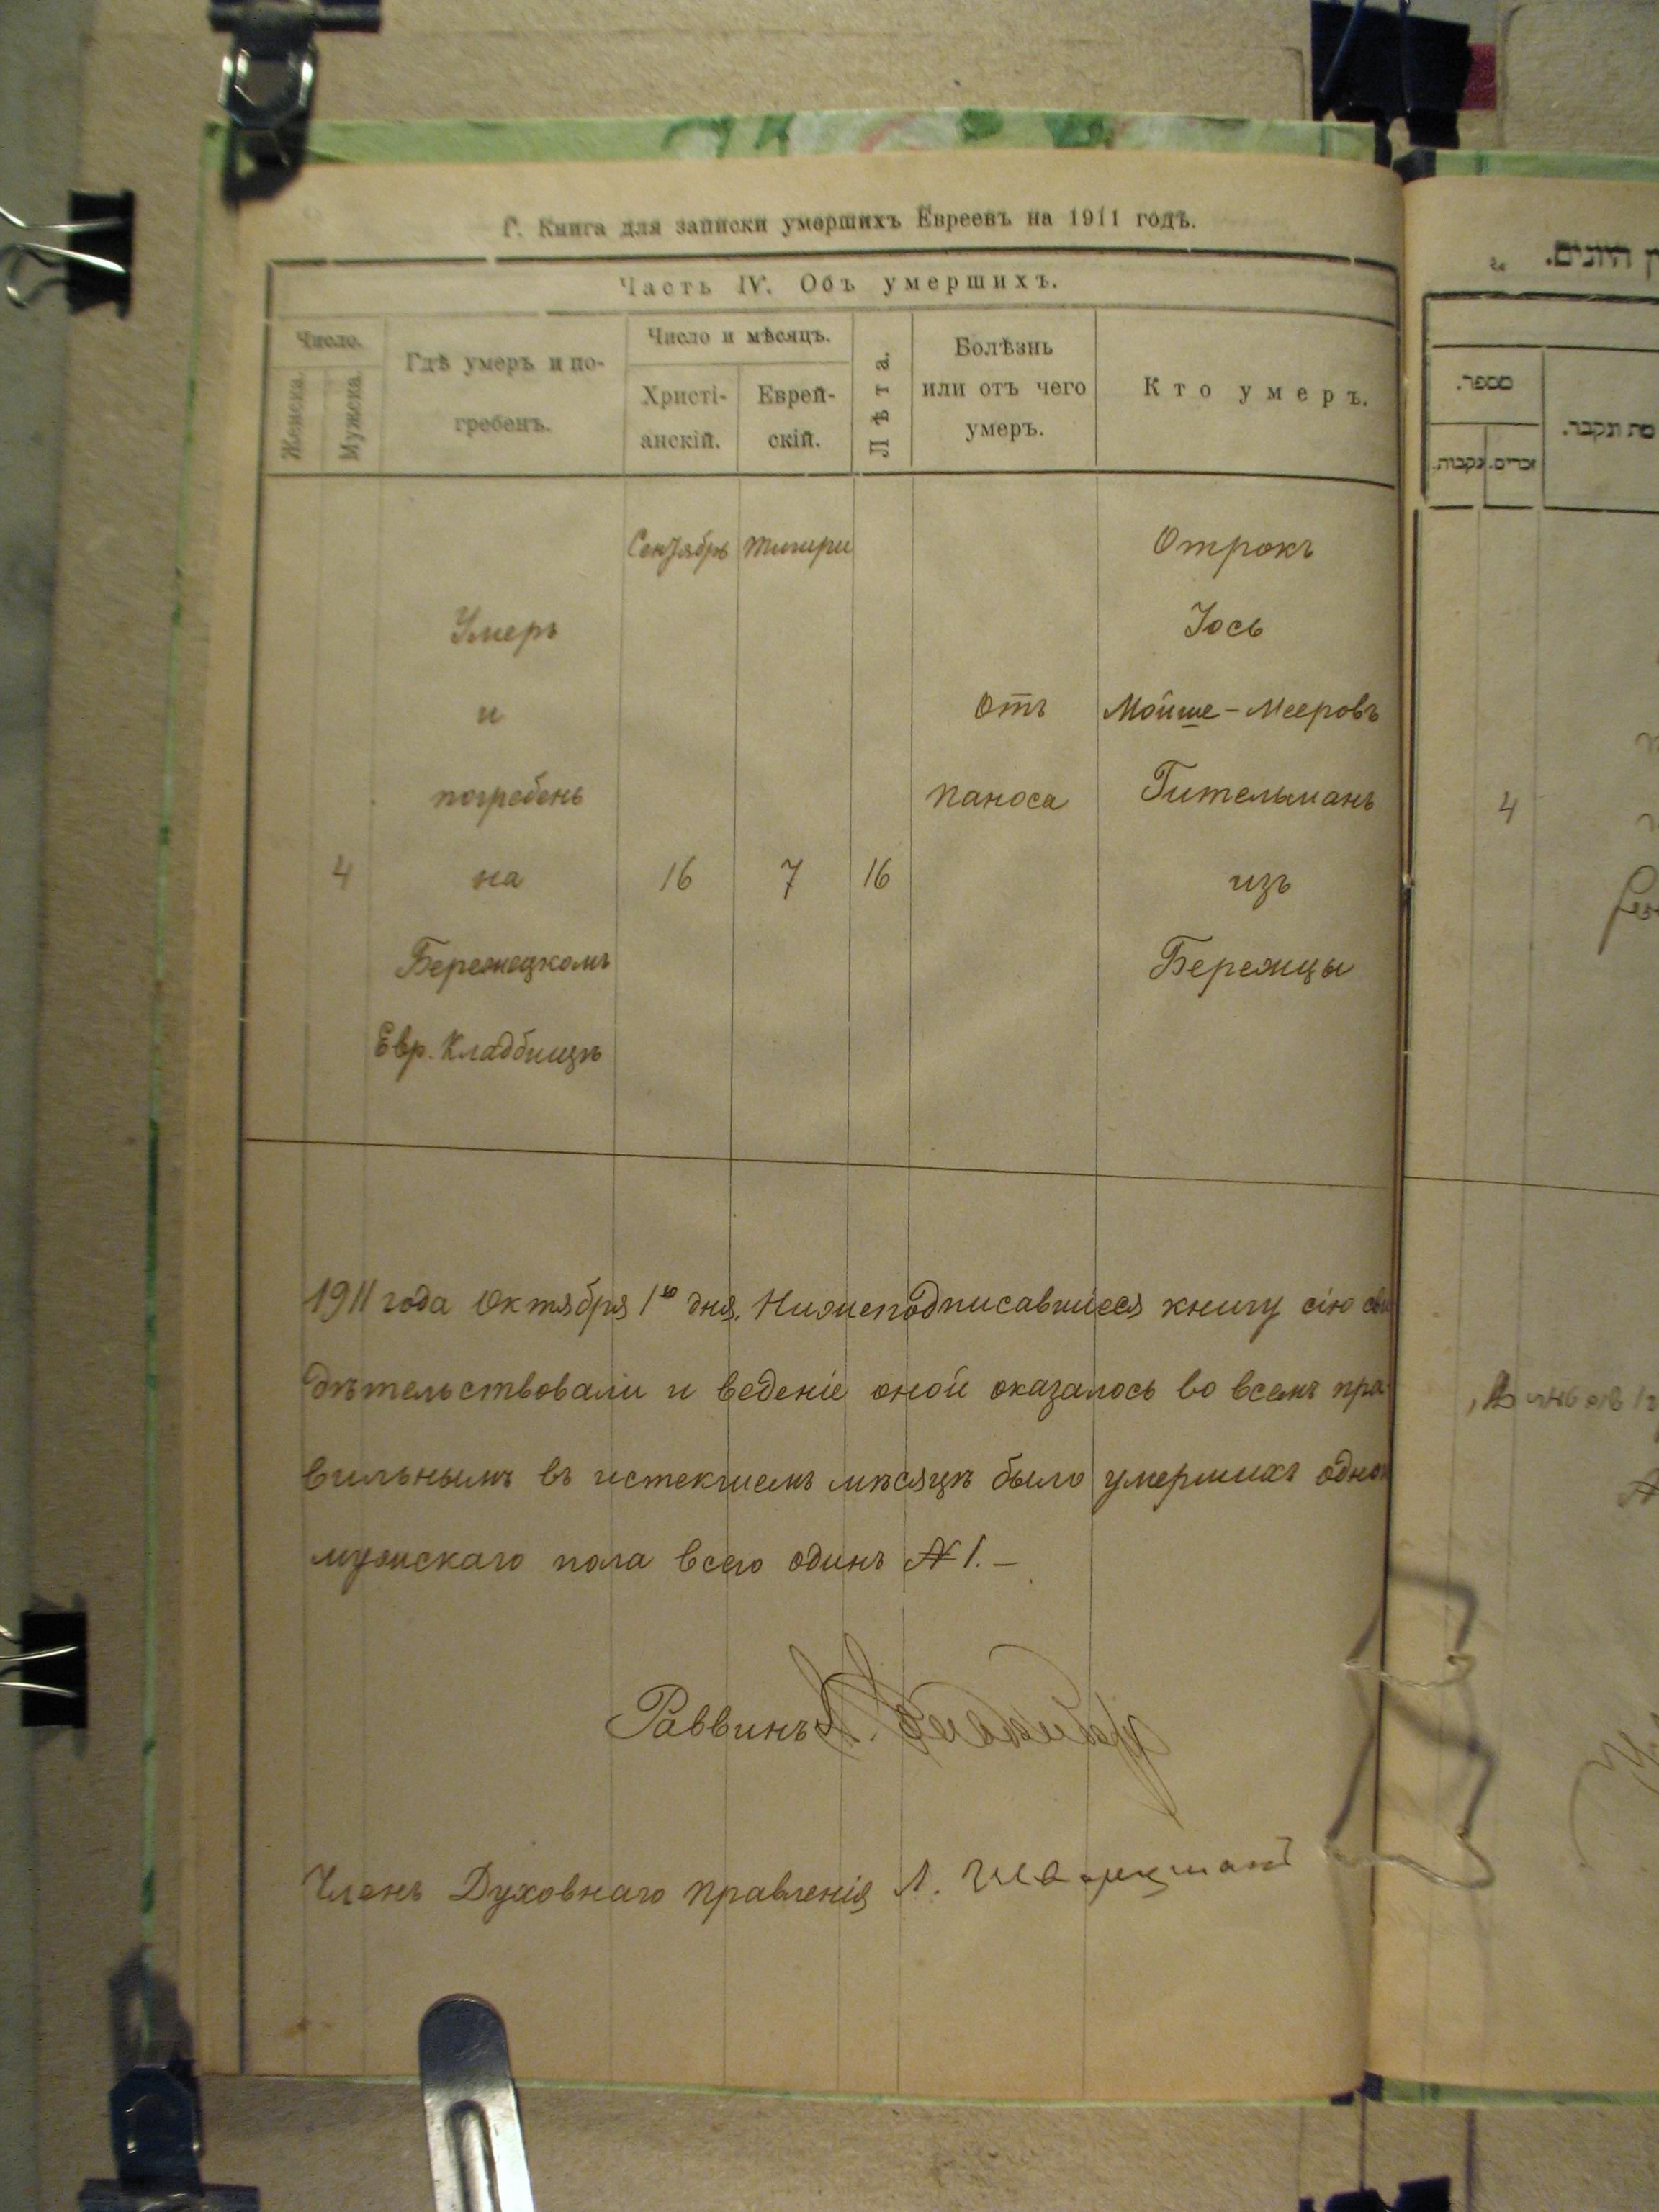 Г. Книга для записки умершихъ Евреевъ на 1911 годъ.
Часть IV. Объ умершихъ.
Число.
Женска.
Мужска.
Гдѣ умеръ и по-
гребенъ.
Число и мѣсяцъ.
Христі-
анскій.
Еврей-
скій.
Лѣта.
Болѣзнь
или отъ чего
умеръ.
Кто умеръ.
Сентябрь Тишри Отрокъ
Умеръ Іось
и Отъ Мойше-Мееровъ
погребенъ паноса Гительманъ
4 на 16 7 16 изъ
Бережецкомъ Бережцы
Евр. Кладбищѣ
1911 года Октября 1го дня. Нижеподписавшіеся книгу сію сви
дѣтельствовали и веденіе оной оказалось во всемъ пра-
вильнымъ въ истекшемъ мѣсяцѣ было умершихъ
мужскаго пола всего одинъ № 1. —
Раввинъ
Членъ Духовнаго правленія Л.
מספר.
נקבות.
זכרים.
ונקבר.
4